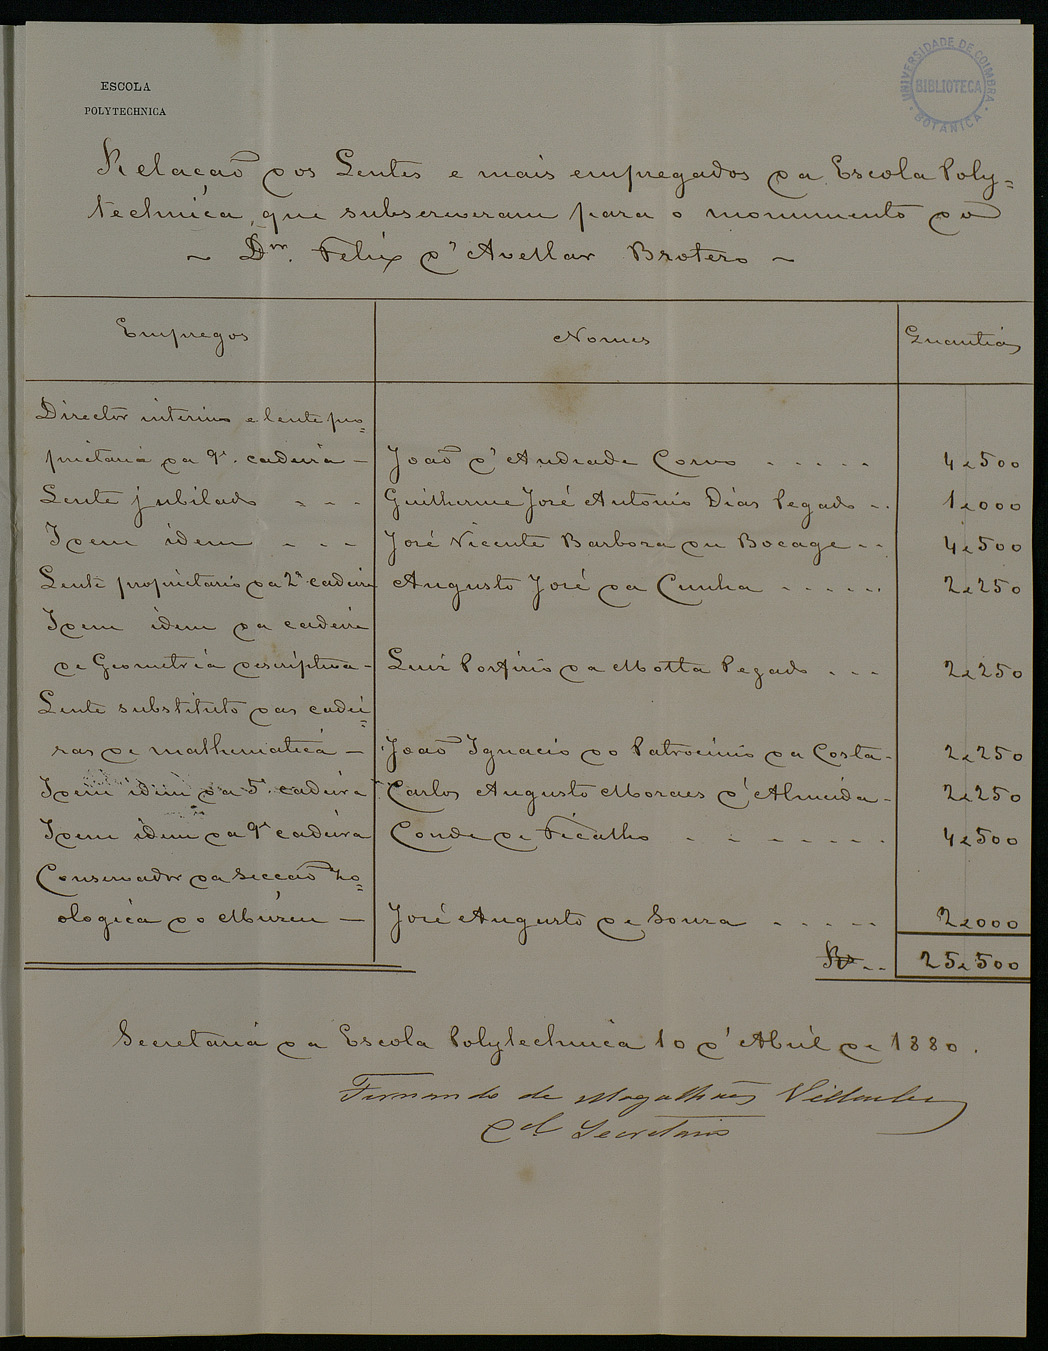 ESCOLA
POLYTECHNICA
UNIVERSIDADE DE COIMBRA
BIBLIOTECA
BOTANICA
Relação dos Lentes e mais empregados da Escola Poly=
technica, que subscreveram para o monumento do
~ Dor. Felix d'Avellar Brotero ~
Empregos Nomes Quantias
Director interino e lente pro=
prietario da 9ª. cadeira — João d'Andrade Corvo . . . . . 4$500
Lente jubilado - - - Guilherme José Antonio Dias Pegado . . 1$000
Idem idem - - - José Vicente Barboza du Bocage . . 4$500
Lente proprietario da 2ª cadeira Augusto José da Cunha . . . . . . 2$250
Idem idem da cadeira
de Geometria descriptiva - Luiz Porfirio da Motta Pegado . . . 2$250
Lente substituto das cadei=
ras de mathematica — João Ignacio do Patrocinio da Costa - 2$250
Idem idem da 5ª. cadeira Carlos Augusto Moraes d'Almeida - 2$250
Idem idem da 9ª cadeira Conde de Ficalho - - - - - - - 4$500
Conservador da secção Zo=
ologica do Muzeu — José Augusto de Souza . . . . . 2$000
Rs . . 25$500
Secretaria da Escola Polytechnica 10 d'Abril de 1880.
Fernando de Magalhães Villas-boas
Secretario